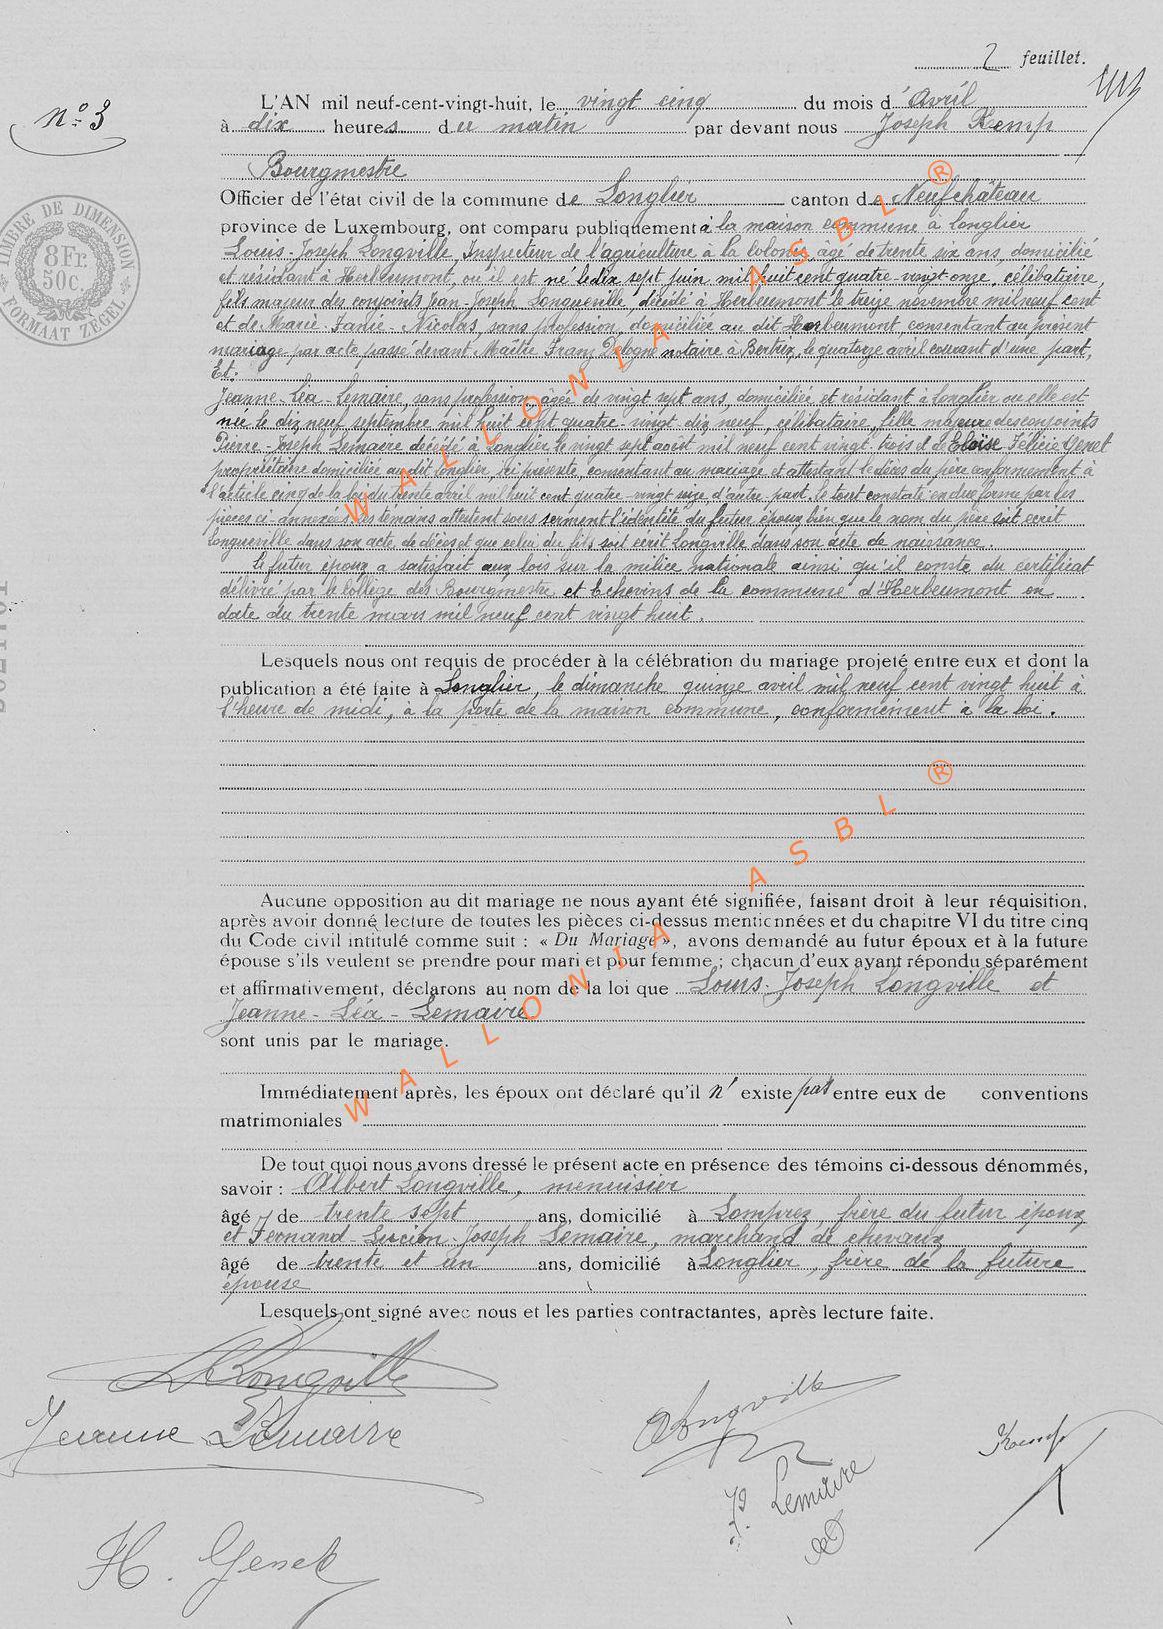 2 feuillet.
n° 3
L'AN mil neuf-cent-vingt-huit, le vingt cinq du mois d'Avril
à dix heures du matin par devant nous Joseph Kemp
Bourgmestre
Officier de l'état civil de la commune de Longlier canton de Neufchâteau
province de Luxembourg, ont comparu publiquement à la maison commune à Longlier
Louis-Joseph Longville, Inspecteur de l'agriculture à la colonie, âgé de trente six ans, domicilié
et résidant à Herbeumont, où il est né le dix sept juin mil huit cent quatre-vingt onze, célibataire,
fils majeur des conjoints Jean-Joseph Longueville, décédé à Herbeumont le treize novembre mil neuf cent
et de Marie-Fanie-Nicolas, sans profession, domiciliée au dit Herbeumont, consentant au présent
mariage par acte passé devant Maître Franz Delogne notaire à Bertrix, le quatorze avril courant d'une part,
Et:
Jeanne-Léa-Lemaire, sans profession, âgée de vingt sept ans, domiciliée et résidant à Longlier ou elle est
née le dix neuf septembre mil huit cent quatre-vingt dix neuf, célibataire, fille majeure des conjoints
Pierre-Joseph Lemaire décédé à Longlier le vingt sept août mil neuf cent vingt trois et de Eloïse Félicie Genet
propriétaire domiciliée au dit Longlier, ici présente, consentant au mariage et attestant le décès du père conformément à
l'article cinq de la loi du trente avril mil huit cent quatre-vingt seize d'autre part. le tout constaté en due forme par les
pièces ci-annexées les témoins attestent sous serment l'identité du futur époux bien que le nom du père soit écrit
Longueville dans son acte de décès et que celui du fils soit écrit Longville dans son acte de naissance.
Le futur époux a satisfait aux lois sur la milice nationale ainsi qu'il conste du certificat
délivré par le collège des Bourgmestre et Echevins de la commune d'Herbeumont en
date du trente mars mil neuf cent vingt huit.
Lesquels nous ont requis de procéder à la célébration du mariage projeté entre eux et dont la
publication a été faite à Longlier, le dimanche quinze avril mil neuf cent vingt huit à
l'heure de midi, à la porte de la maison commune, conformément à la loi.
Aucune opposition au dit mariage ne nous ayant été signifiée, faisant droit à leur réquisition,
après avoir donné lecture de toutes les pièces ci-dessus mentionnées et du chapitre VI du titre cinq
du Code civil intitulé comme suit : « Du Mariage », avons demandé au futur époux et à la future
épouse s'ils veulent se prendre pour mari et pour femme ; chacun d'eux ayant répondu séparément
et affirmativement, déclarons au nom de la loi que Louis-Joseph Longville et
Jeanne-Léa-Lemaire
sont unis par le mariage.
Immédiatement après, les époux ont déclaré qu'il n'existe pas entre eux de conventions
matrimoniales
De tout quoi nous avons dressé le présent acte en présence des témoins ci-dessous dénommés,
savoir : Albert Longville, menuisier
âgé de trente sept ans, domicilié à Lomprez, frère du futur époux
et Fernand-Lucien-Joseph Lemaire, marchand de chevaux
âgé de trente et un ans, domicilié à Longlier, frère de la future
épouse
Lesquels ont signé avec nous et les parties contractantes, après lecture faite.
Longville
Jeanne Lemaire
Longville
Lemaire
Kemp
H. Genet
TIMBRE DE DIMENSION
8 Fr.
50c.
FORMAAT ZEGEL
WALLONIA ASBL ®
WALLONIA ASBL ®